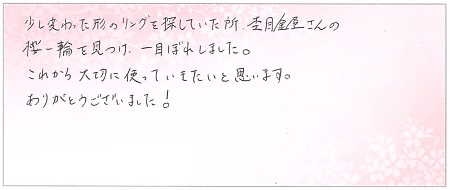 少し変わった形のリングを探していた所、杢目金屋さんの
桜一輪を見つけ、一目ぼれしました。
これから大切に使っていきたいと思います。
ありがとうございました!